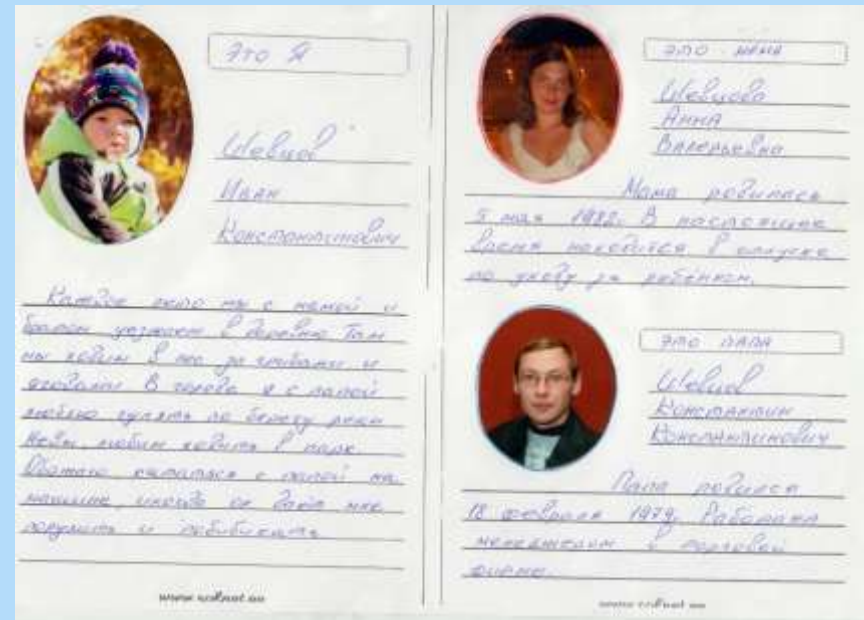 Это Я
Шевцов
Иван
Константинович
Каждое лето мы с мамой и
братом уезжаем в деревню. Там
мы ходим в лес за грибами и
ягодами. В городе я с папой
люблю гулять по берегу реки
Невы, любим ходить в парк.
Обожаю кататься с папой на
машине, иногда он даёт мне
порулить и побибикать
Это мама
Шевцова
Анна
Валерьевна
Мама родилась
5 мая 1982. В настоящее
время находится в отпуске
по уходу за ребёнком.
Это папа
Шевцов
Константин
Константинович
Папа родился
18 февраля 1979. Работает
менеджером в торговой
фирме.